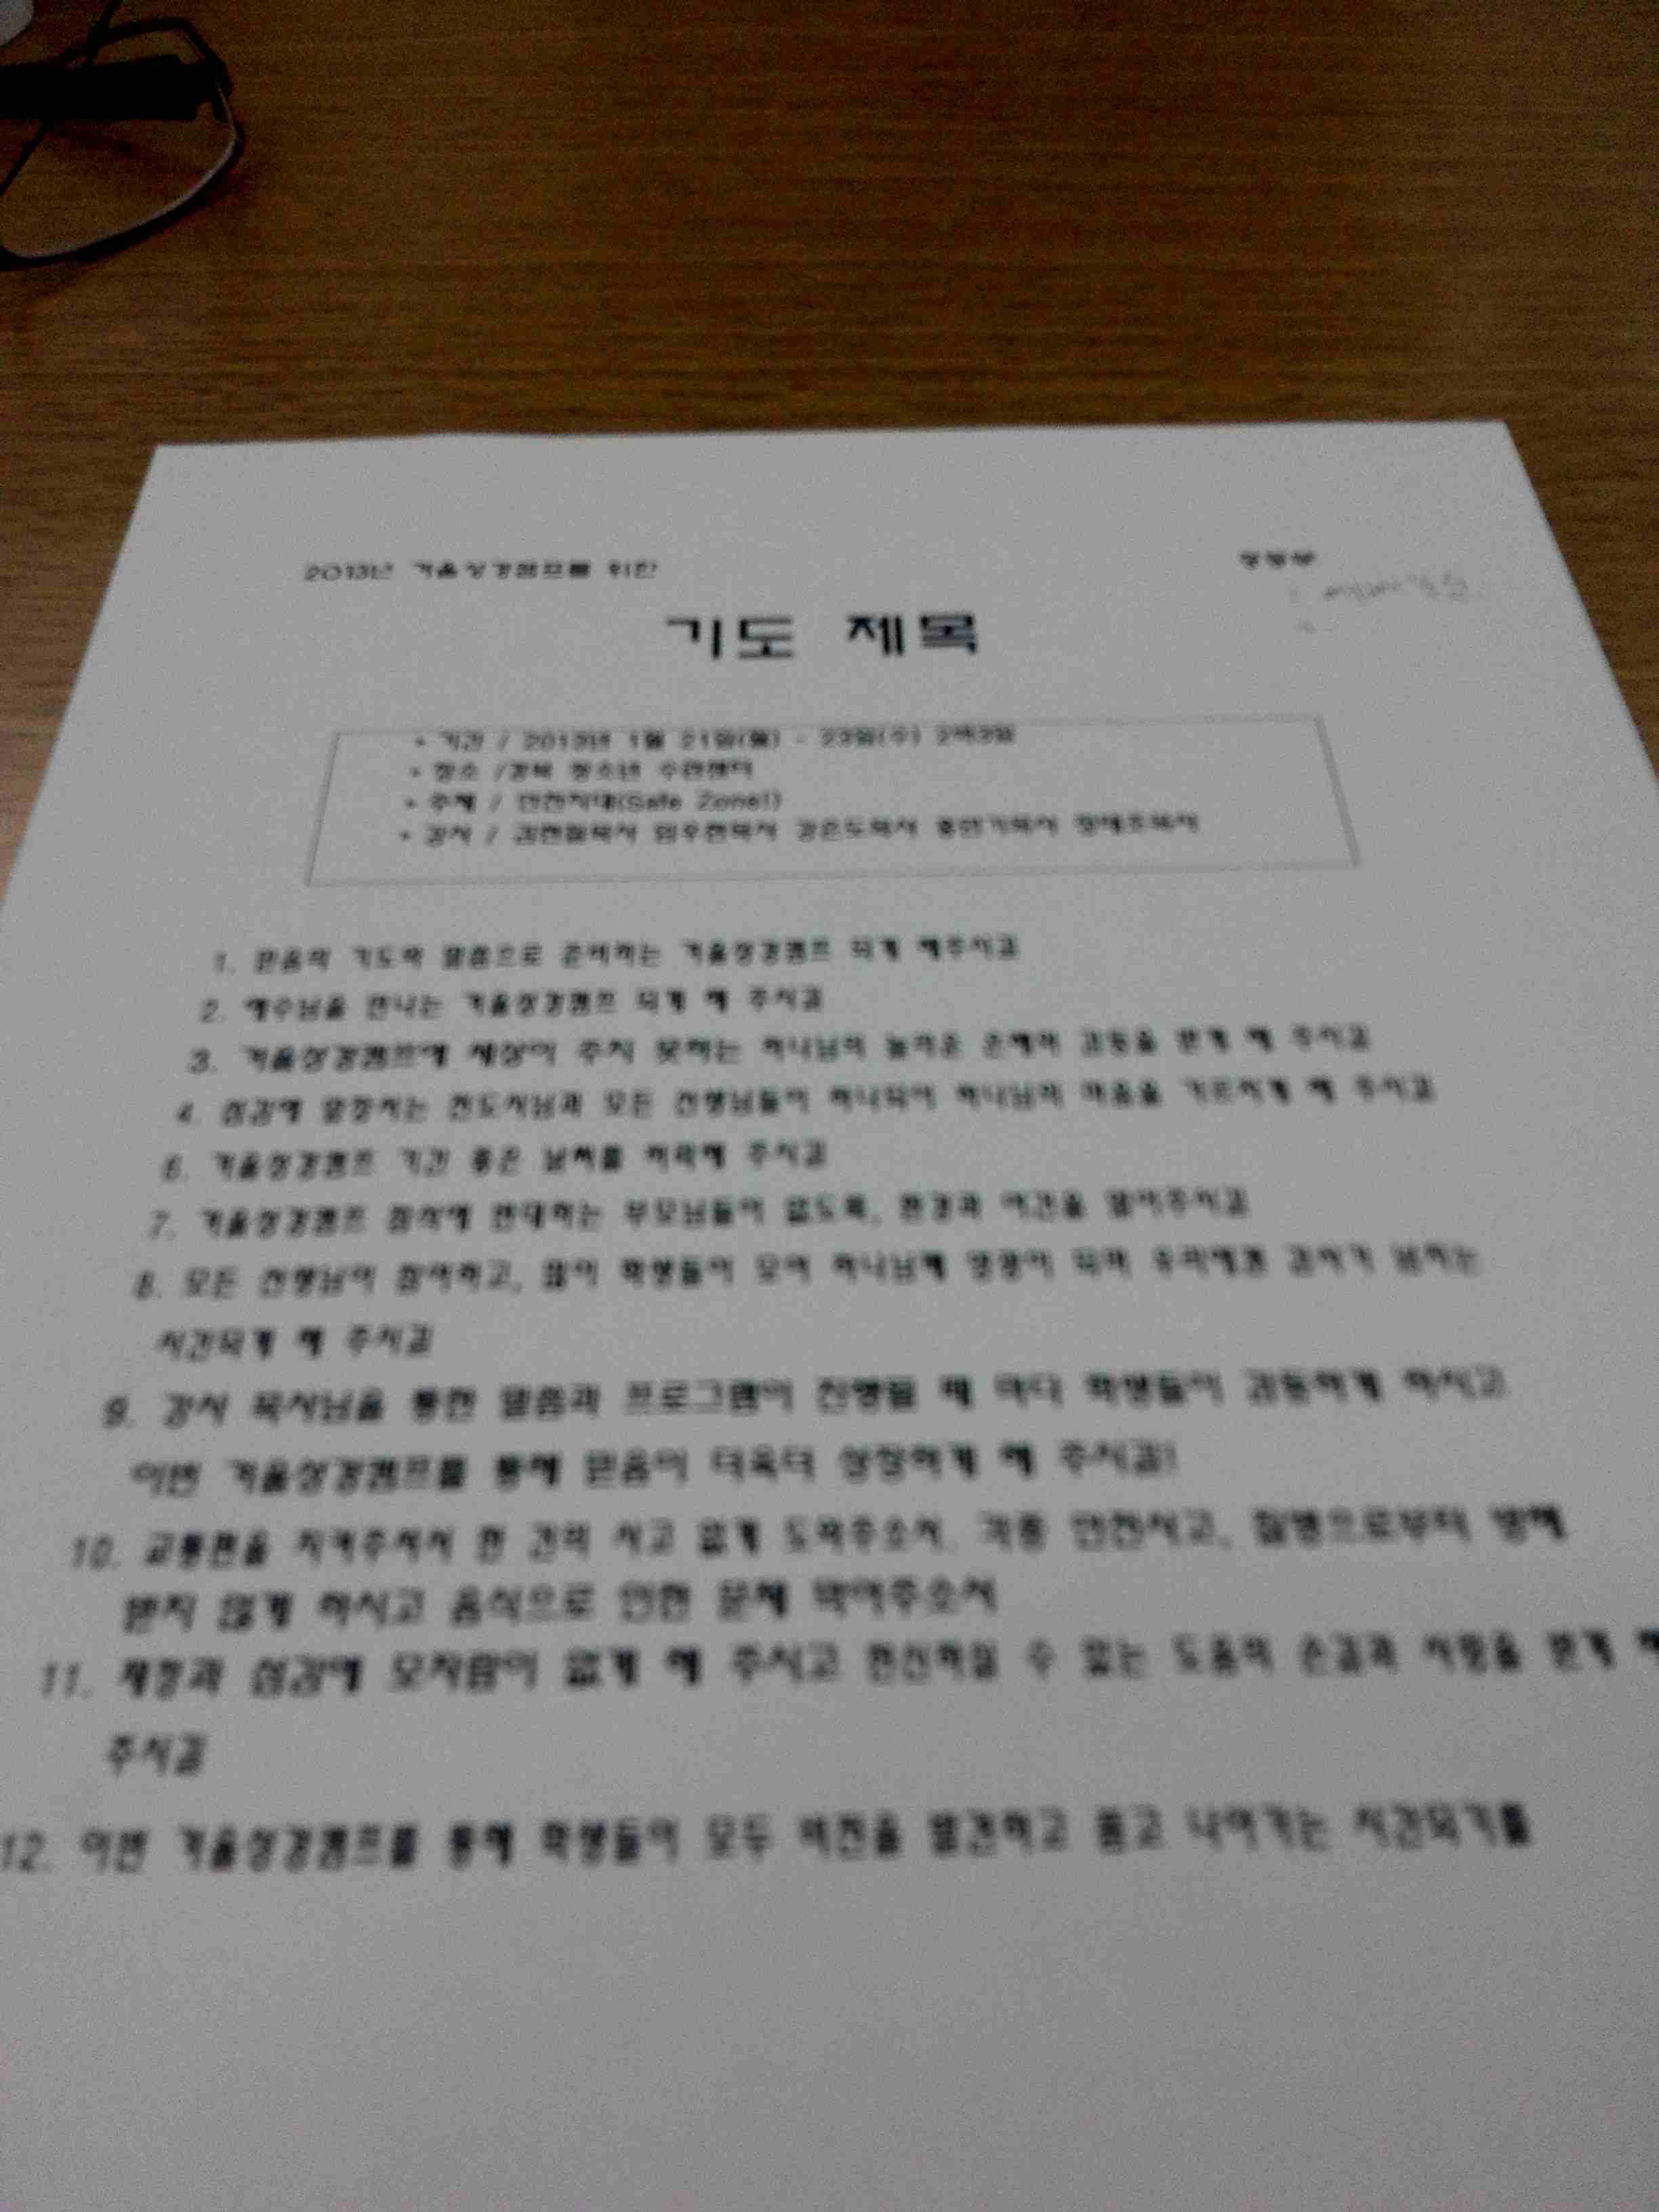 2013년 겨울성경캠프를 위한
기도 제목
• 기간 / 2013년 1월 21일(월) - 23일(수) 2박3일
• 장소 /경북 청소년 수련센터
• 주제 / 안전지대(Safe Zone!)
• 강사 /
1. 믿음의 기도와 말씀으로 준비하는 겨울성경캠프 되게 해주시고
2. 예수님을 만나는 겨울성경캠프 되게 해 주시길
3. 겨울성경캠프에 세상이 주지 못하는 하나님의 놀라운 은혜와 감동을 받게 해 주시길
4. 섬김에 앞장서는 전도사님과 모든 선생님들이 하나되어 하나님의 마음을 해 주시길
6. 겨울성경캠프 기간 좋은 날씨를 허락해 주시길
7. 겨울성경캠프 참석에 반대하는 부모님들이 없도록, 환경과 여건을 열어주시길
8. 모든 선생님이 참여하고, 많이 학생들이 모여 하나님께 영광이 되며 우리에겐 감사가 넘치는
시간되게 해 주시길
9. 강사 목사님을 통한 말씀과 프로그램이 진행될 때 마다 학생들이 감동하게 하시고
이번 겨울성경캠프를 통해 믿음이 더욱더 성장하게 해 주시길!
10. 교통편을 지켜주셔서 한 건의 사고 없게 도와주소서. 각종 안전사고, 질병으로부터 방해
받지 않게 하시고 음식으로 인한 문제 막아주소서
11. 재정과 섬김에 모자람이 없게 해 주시고 헌신하실 수 있는 도움의 손길과 사랑을 받게 해
주시길
12. 이번 겨울성경캠프를 통해 학생들이 모두 비전을 발견하고 품고 나아가는 시간되기를